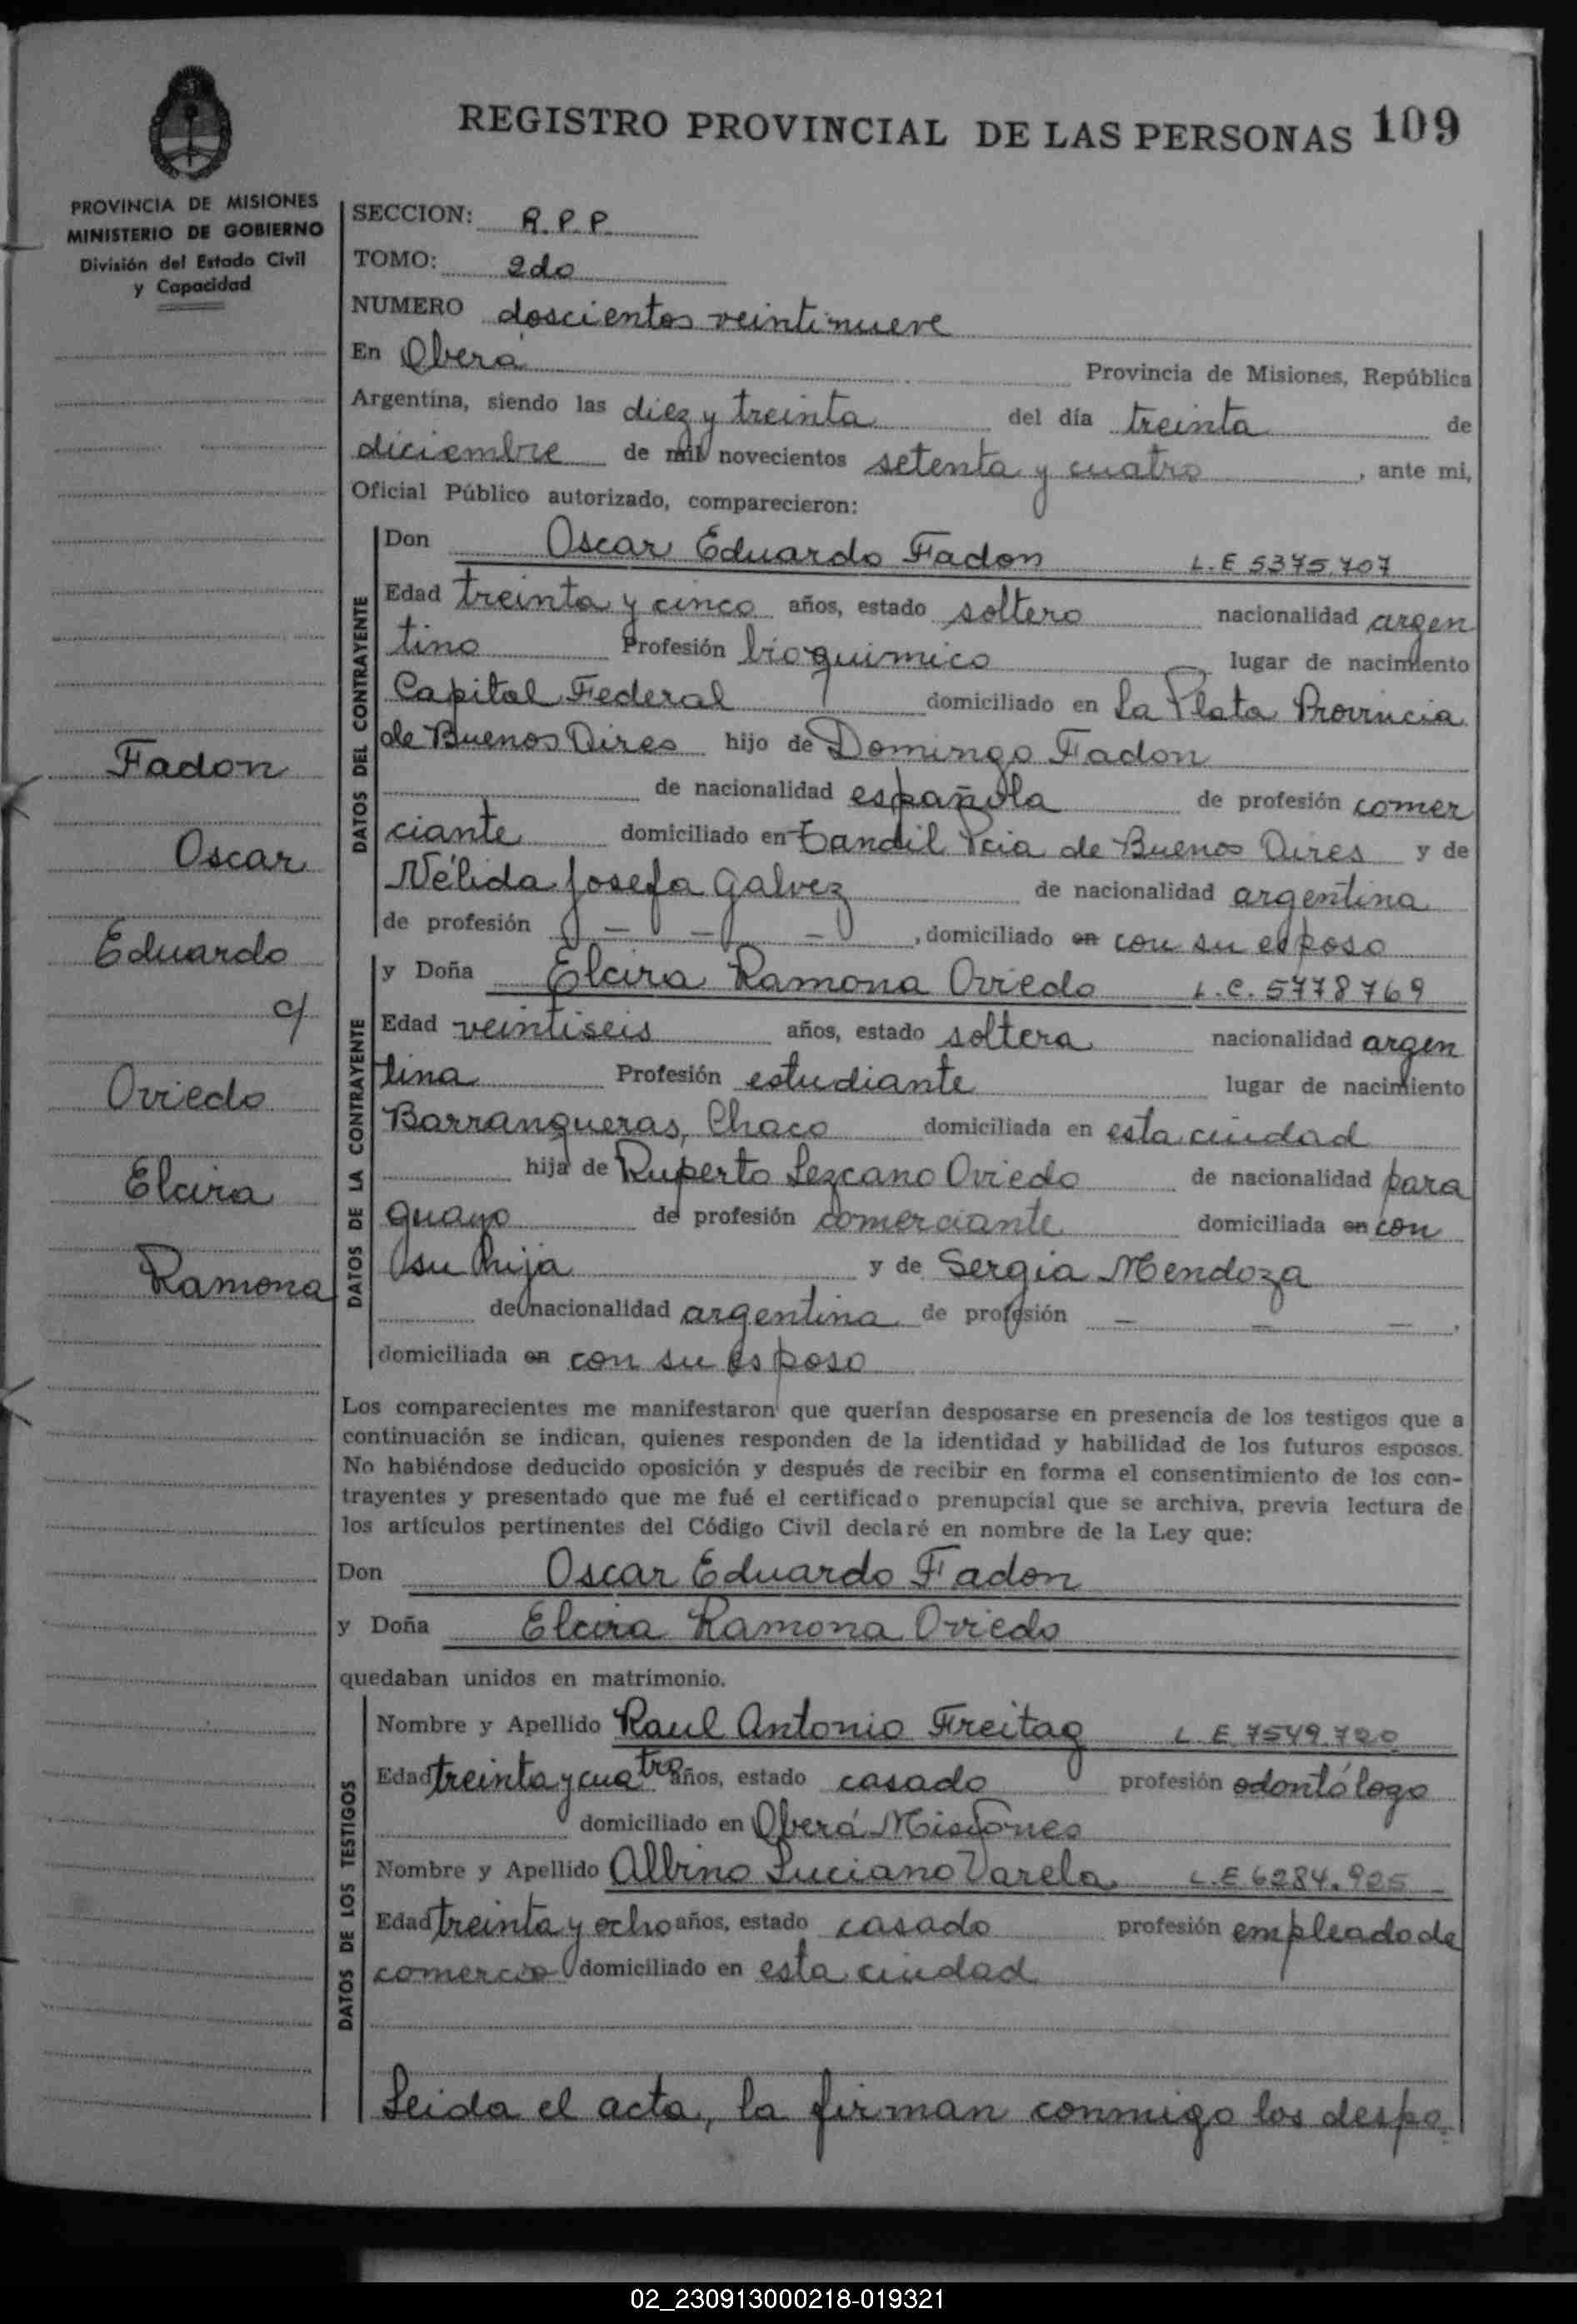 REGISTRO PROVINCIAL DE LAS PERSONAS 109
PROVINCIA DE MISIONES
MINISTERIO DE GOBIERNO
División del Estado Civil
y Capacidad
Fadon
Oscar
Eduardo
c/
Oviedo
Elcira
Ramona
SECCION: R.P.P.
TOMO: 2do
NUMERO doscientos veintinueve
En Oberá Provincia de Misiones, República
Argentina, siendo las diez y treinta del día treinta de
diciembre de mil novecientos setenta y cuatro, ante mi,
Oficial Público autorizado, comparecieron:
DATOS DEL CONTRAYENTE
Don Oscar Eduardo Fadon L.E 5375.707
Edad treinta y cinco años, estado soltero nacionalidad argen
tino Profesión bioquimico lugar de nacimiento
Capital Federal domiciliado en La Plata Provincia
de Buenos Aires hijo de Domingo Fadon
de nacionalidad española de profesión comer
ciante domiciliado en Tandil Pcia de Buenos Aires y de
Nélida Josefa Galvez de nacionalidad argentina
de profesión - - -, domiciliado en con su esposo
DATOS DE LA CONTRAYENTE
y Doña Elcira Ramona Oviedo L.C. 5778769
Edad veintiseis años, estado soltera nacionalidad argen
tina Profesión estudiante lugar de nacimiento
Barranqueras, Chaco domiciliada en esta ciudad
hija de Ruperto Lezcano Oviedo de nacionalidad para
guayo de profesión comerciante domiciliada en con
su hija y de Sergia Mendoza
de nacionalidad argentina de profesión - - -,
domiciliada en con su esposo
Los comparecientes me manifestaron que querían desposarse en presencia de los testigos que a
continuación se indican, quienes responden de la identidad y habilidad de los futuros esposos.
No habiéndose deducido oposición y después de recibir en forma el consentimiento de los con-
trayentes y presentado que me fué el certificado prenupcial que se archiva, previa lectura de
los artículos pertinentes del Código Civil declaré en nombre de la Ley que:
Don Oscar Eduardo Fadon
y Doña Elcira Ramona Oviedo
quedaban unidos en matrimonio.
DATOS DE LOS TESTIGOS
Nombre y Apellido Raul Antonio Freitag L.E 7549.720
Edad treinta y cuatro años, estado casado profesión odontólogo
domiciliado en Oberá Misiones
Nombre y Apellido Albino Luciano Varela L.E 6284.925
Edad treinta y ocho años, estado casado profesión empleado de
comercio domiciliado en esta ciudad
Leida el acta, la firman conmigo los despo
02_230913000218-019321